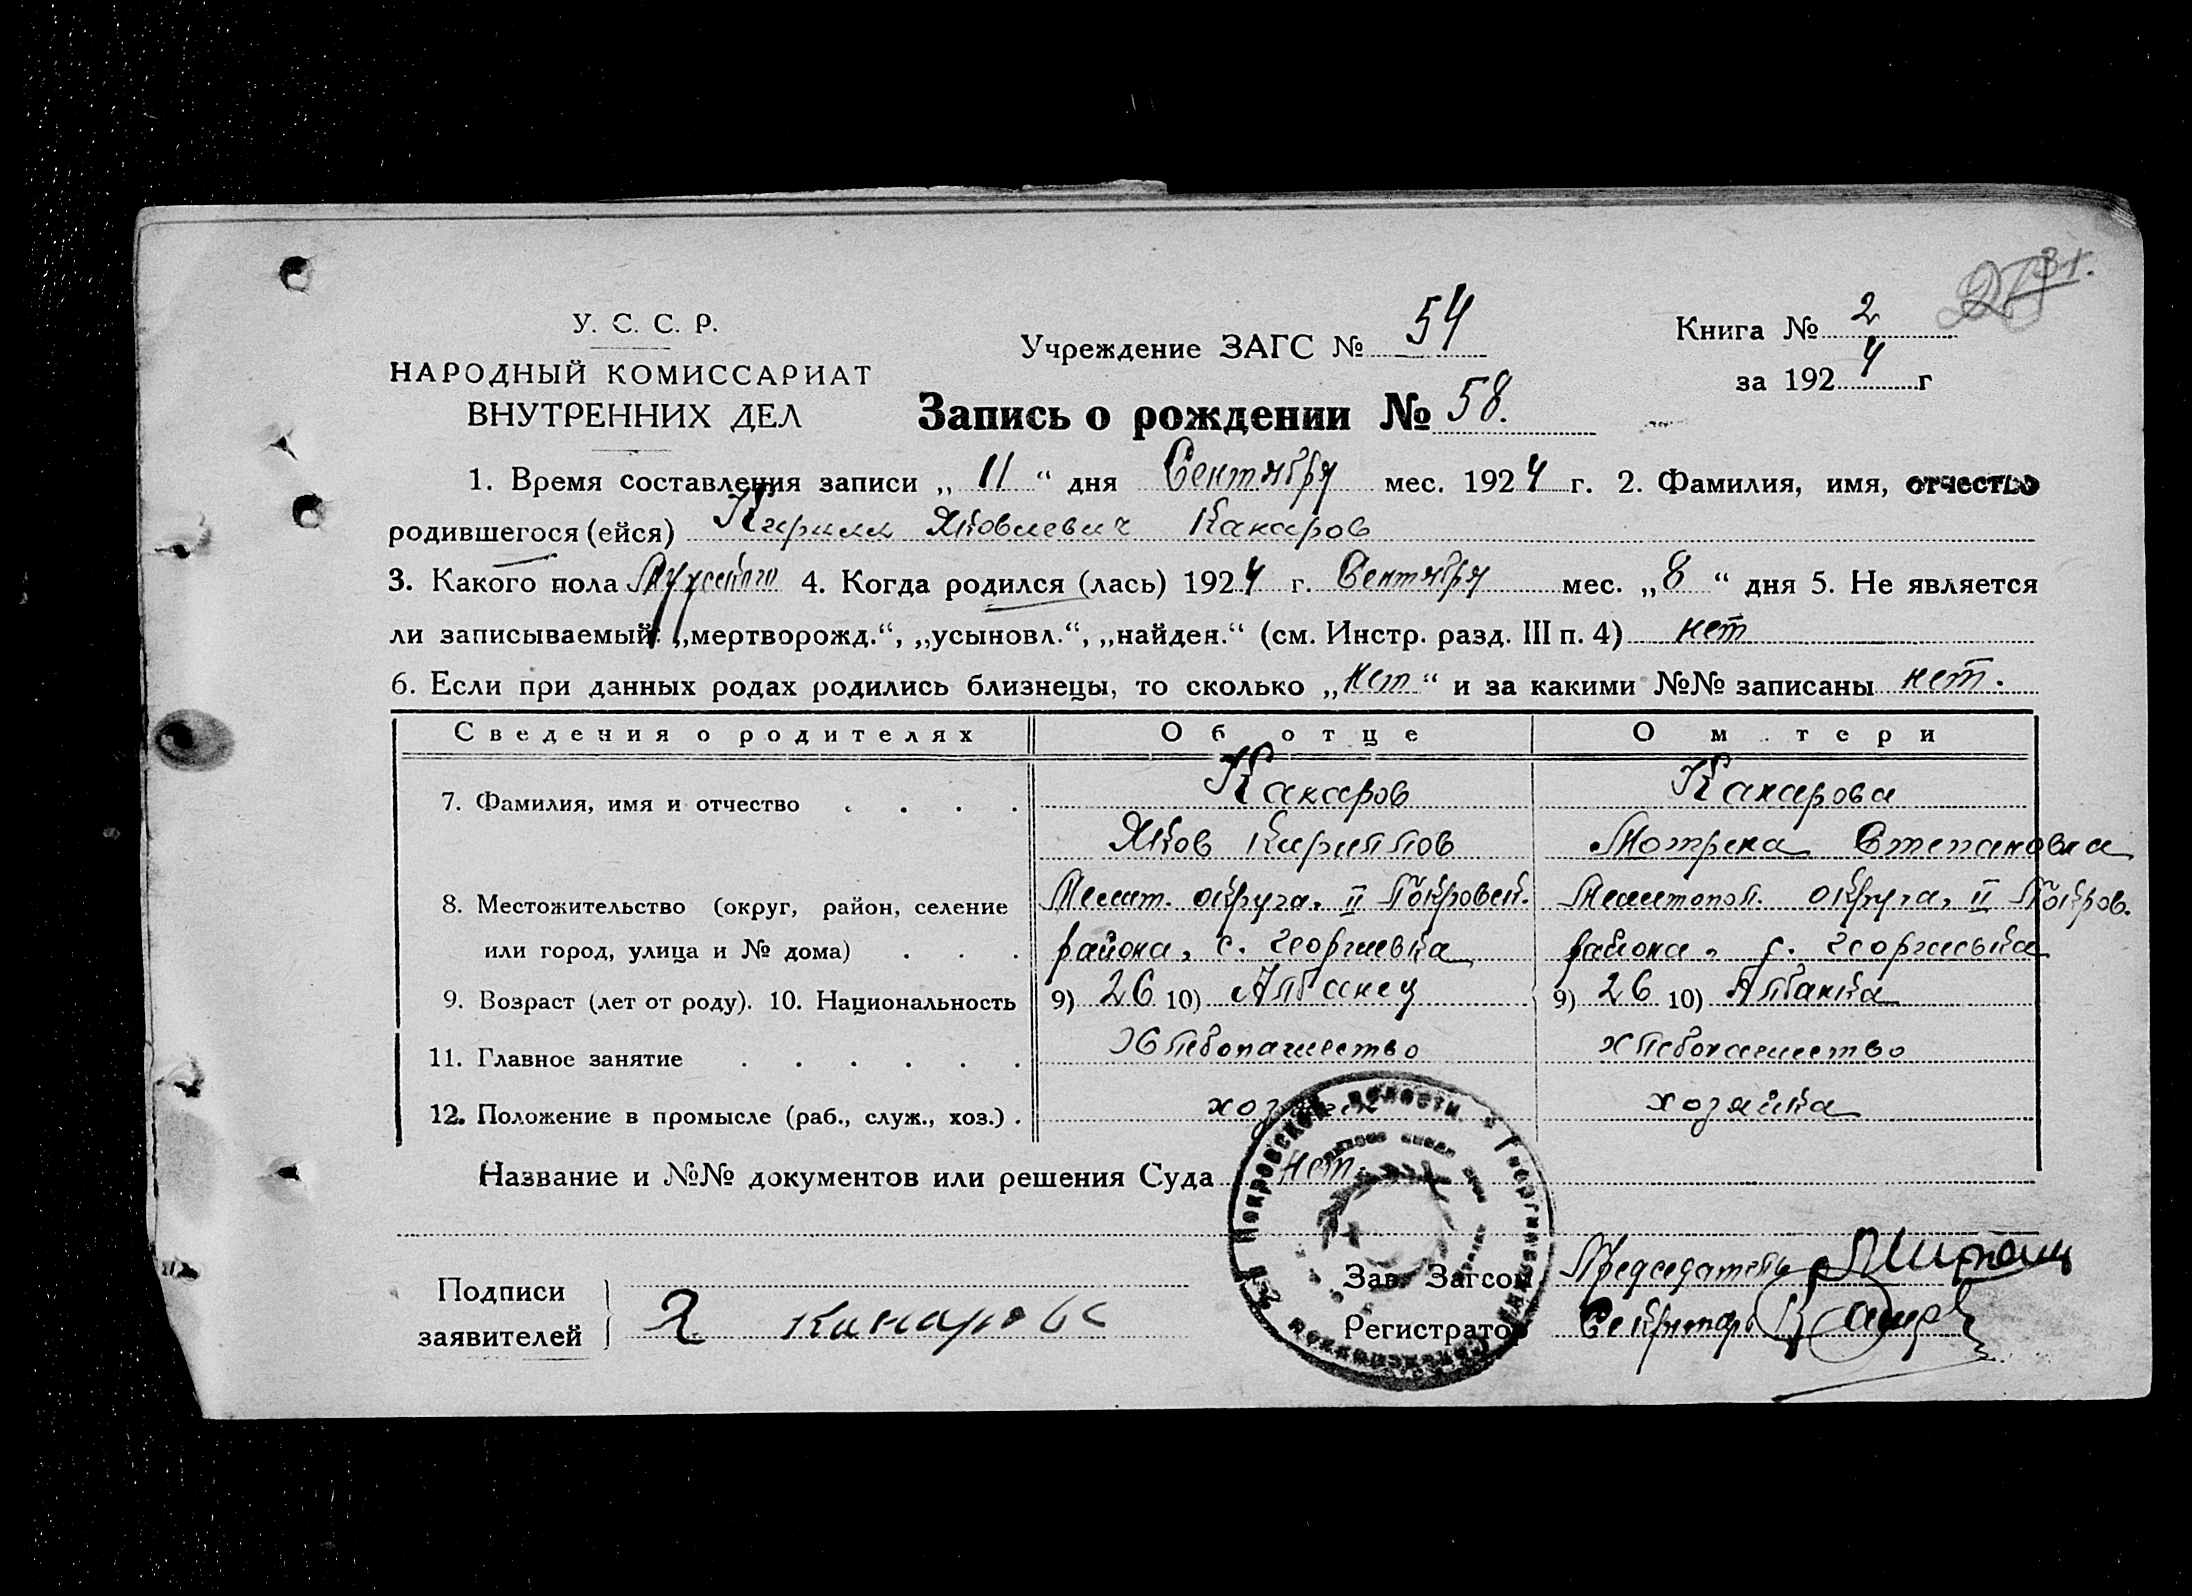 У. С. С. Р.
НАРОДНЫЙ КОМИССАРИАТ
ВНУТРЕННИХ ДЕЛ
Учреждение ЗАГС № 54
Книга № 2
за 1924 г
Запись о рождении № 58.
1. Время составления записи „11“ дня Сентября мес. 1924 г. 2. Фамилия, имя, отчество
родившегося (ейся) Кирилл Яковлевич Канаров
3. Какого пола Мужского 4. Когда родился (лась) 1924 г. Сентября мес. „8“ дня 5. Не является
ли записываемый: „мертворожд.“, „усыновл.“, „найден.“ (см. Инстр. разд. III п. 4) нет
6. Если при данных родах родились близнецы, то сколько „нет“ и за какими №№ записаны нет.
Сведения о родителях Об отце О м тери
7. Фамилия, имя и отчество . . . . Канаров Канарова
Яков Кириллов Мотрена Степановна
8. Местожительство (округ, район, селение Мелит. округа, II Покровск. Мелитопол. округа, II Покров.
или город, улица и № дома) . . . района, с. Георгиевка района, с. Георгиевка
9. Возраст (лет от роду). 10. Национальность 9) 26 10) Албанец 9) 26 10) Албанка
11. Главное занятие . . . . . . Хлебопашество хлебопашество
12. Положение в промысле (раб., служ., хоз.) . хозяин хозяйка
Название и №№ документов или решения Суда нет.
Подписи
заявителей Я Канарова
Зав. Загсом Председатель
Регистратор Секретарь
2-й Покровской волости Георгиевский